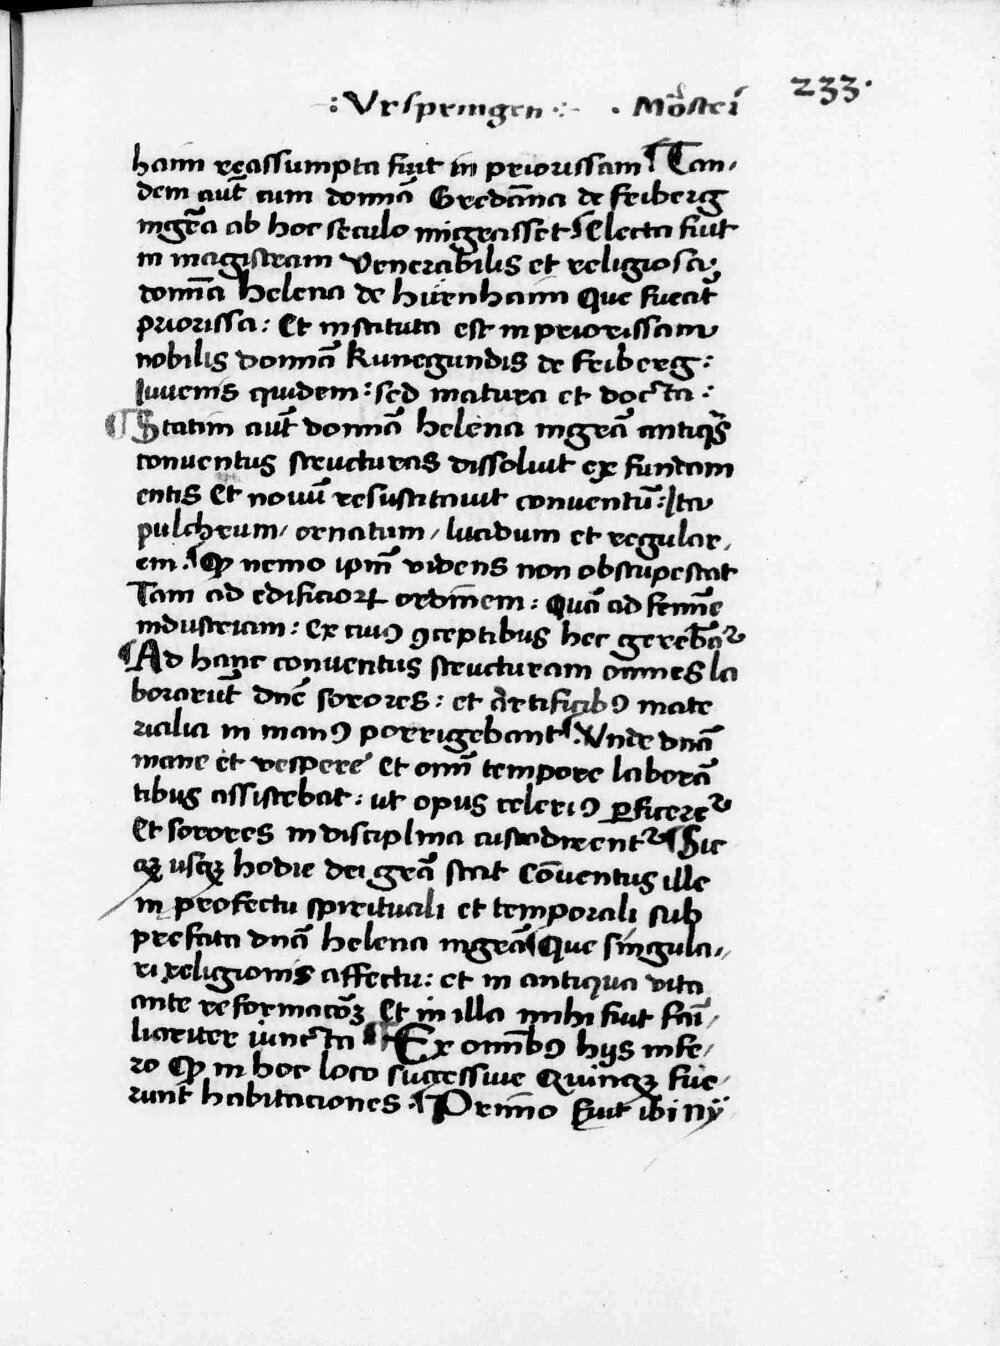 : Urspringen : · Mōsteri̅ 233.
hain reassumpta fuit in priorissam ¶ Tan-
dem aut̄ cum domnā Gredām̄a de freiberg
ingrā̄ ab hoc seculo migrasset ¶ Electa fuit
in magistram Venerabilis et religiosa
dom̄a helena de hürnhaim Que fuerat
priorissa : Et instituta est in priorissam
nobilis domnā kunegundis de freiberg :
Iuvenis quidem : sed matura et docta :
¶ Statim aut̄ domnā helena ingrā̄ antiqᷤ
conventus structuras dissoluit ex fundam
entis Et novū resuscitavit conventū : Ita
pulchrum / ornatum / lucidum et regular-
em . ¶ Ꝙ nemo ip̄m videns non obstupescat
Tam ad edificioꝝ ordinem : Quā ad femīne
industriam : Ex cuiꝰ ꝯceptibus hec gerebāt᷑
¶ Ad hanc conventus structuram omnes la
borarūt dnē sorores : et artificibꝰ mate
rialia in manꝰ porrigebant ¶ Unde dnā
mane et vespere Et omī tempore laborā
tibus assistebat : ut opus celeriꝰ ꝑficeret᷑
Et sorores in disciplina custodirent᷑ ¶ Sic
qꝫ usqꝫ hodie dei grā stat Cōventus ille
in profectu spirituali et temporali sub
prefata dnā helena ingrā̄ ¶ Que singula-
ri religionis affectu : et in antiqua vita
ante reformacōꝫ Et in illa mihi fuit fāi-
liariter iuncta ¶ Ex omībꝰ hijs infe-
ro Ꝙ in hoc loco successiue Quinqꝫ fue-
runt habitaciones . ¶ Primo fuit ibi nÿ